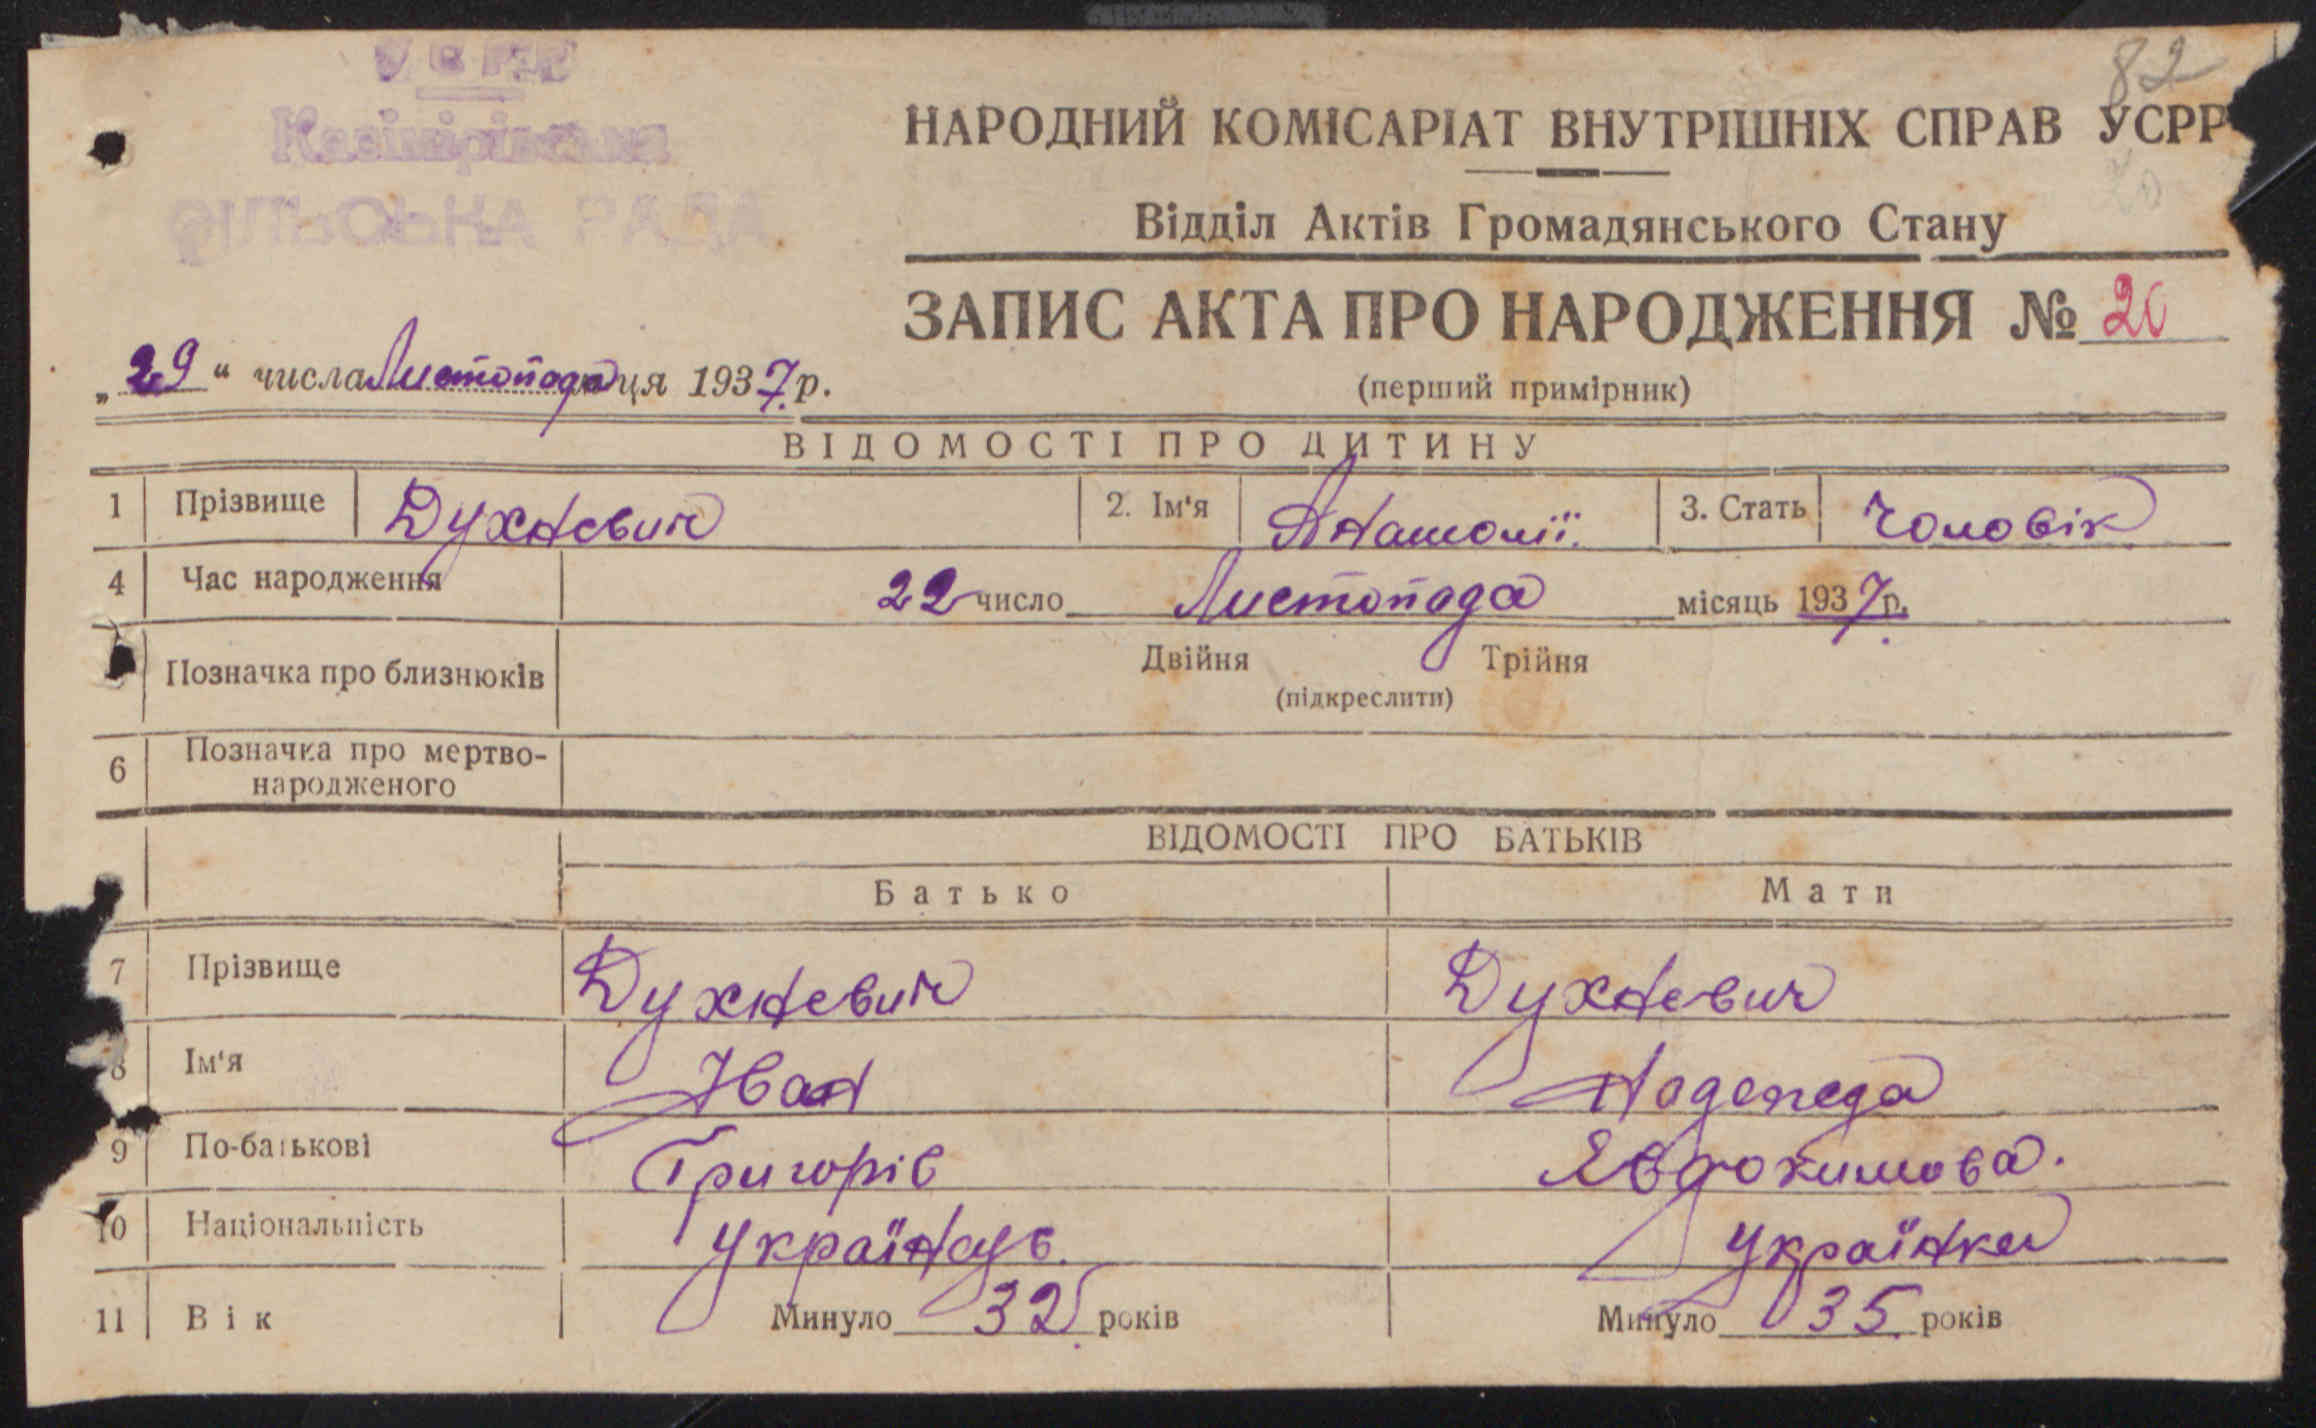 82
УСРР
Казімірівська
СІЛЬСЬКА РАДА
НАРОДНИЙ КОМІСАРІАТ ВНУТРІШНІХ СПРАВ УСРР
20
Відділ Актів Громадянського Стану
ЗАПИС АКТА ПРО НАРОДЖЕННЯ № 20
„29“ числа Листопада ця 1937 р.
(перший примірник)
ВІДОМОСТІ ПРО ДИТИНУ
1 Прізвище Духневич 2. Ім'я Анатолії. 3. Стать Чоловік
4 Час народження 22 число Листопада місяць 1937 р.
Позначка про близнюків Двійня Трійня
(підкреслити)
6 Позначка про мертво-
народженого
ВІДОМОСТІ ПРО БАТЬКІВ
Батько Мати
7 Прізвище Духневич Духневич
8 Ім'я Іван Надежда
9 По-батькові Григорів Явдокимова.
10 Національність Українець. Українка
11 Вік Минуло 32 років Минуло 35 років